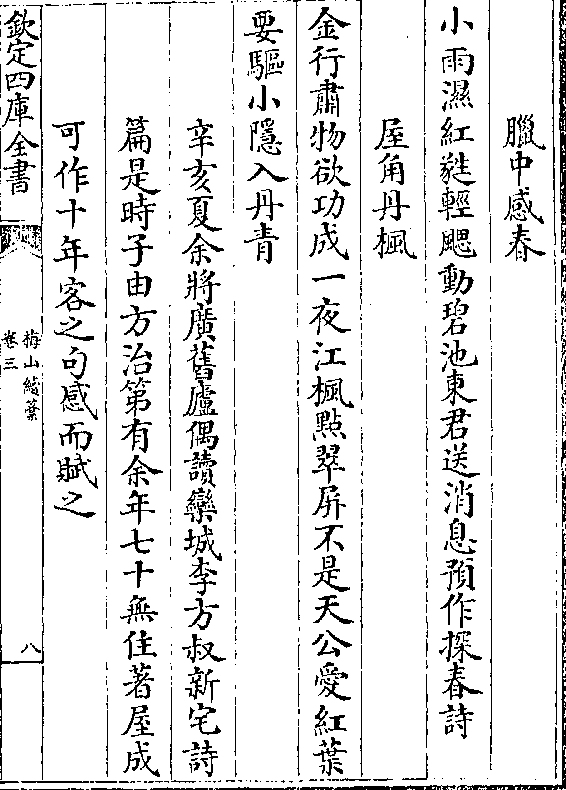 臘中感春
小雨濕紅蕤輕颸動碧池東君送消息預作探春詩
屋角丹楓
金行肅物欲功成一夜江楓點翠屏不是天公愛紅葉
要驅小隱入丹青
辛亥夏余將廣舊廬偶讀欒城李方叔新宅詩
篇是時子由方治第有余年七十無住著屋成
可作十年客之句感而賦之
欽定四庫全書
梅山續藁
卷三
八